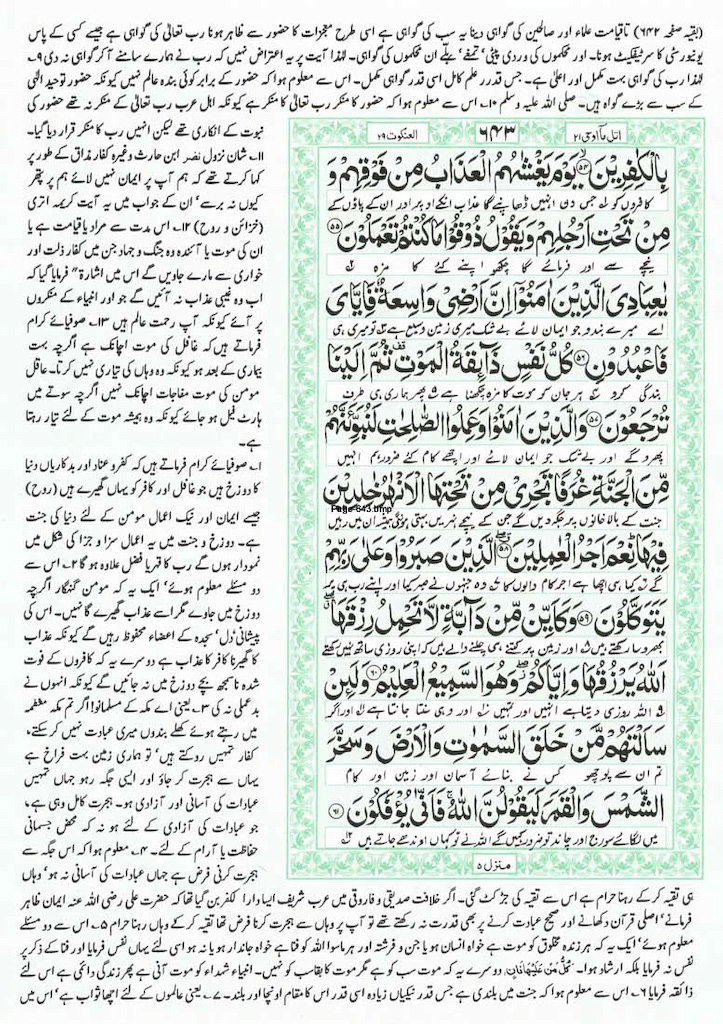 (بقیہ صفحہ ۶۴۲) تاقیامت علماء اور صالحین کی گواہی دینا یہ سب کی گواہی ہے اسی طرح معجزات کا حضور سے ظاہر ہونا رب تعالیٰ کی گواہی ہے جیسے کسی کے پاس
یونیورسٹی کا سرٹیفکیٹ ہونا۔ اور محکموں کی وردی پیٹی' تمغے' بیلے ان محکموں کی گواہی۔ لہذا آیت پر یہ اعتراض نہیں کہ رب نے ہمارے سامنے آ کر گواہی نہ دی ۹۔
لہذا رب کی گواہی بہت مکمل اور اعلیٰ ہے۔ جس قدر علم کامل اسی قدر گواہی مکمل۔ اس سے معلوم ہوا کہ حضور کے برابر کوئی بندہ عالم نہیں کیونکہ حضور توحید الٰہی
کے سب سے بڑے گواہ ہیں۔ صلی اللہ علیہ وسلم ۱۰۔ اس سے معلوم ہوا کہ حضور کا منکر رب تعالیٰ کا منکر ہے کیونکہ اہل عرب رب تعالیٰ کے منکر نہ تھے حضور کی
نبوت کے انکاری تھے لیکن انہیں رب کا منکر قرار دیا گیا۔
۱۱۔ شان نزول نضر ابن حارث وغیرہ کفار مذاق کے طور پر
کہا کرتے تھے کہ ہم آپ پر ایمان نہیں لائے ہم پر پتھر
کیوں نہ برسے' ان کے جواب میں یہ آیت کریمہ اتری
(خزائن و روح) ۱۲۔ اس مدت سے مراد یا قیامت ہے یا
ان کی موت یا آئندہ وہ جنگ و جہاد جن میں کفار ذلت اور
خواری سے مارے جاویں گے اس میں اشارۃ" فرمایا گیا کہ
اب وہ غیبی عذاب نہ آئیں گے جو اور انبیاء کے منکروں
پر آئے کیونکہ آپ رحمت عالم ہیں ۱۳۔ صوفیائے کرام
فرماتے ہیں کہ غافل کی موت اچانک ہے اگرچہ بہت
بیماری کے بعد ہو کیونکہ وہ وہاں کی تیاری نہیں کرتا۔ عاقل
مومن کی موت مفاجات اچانک نہیں اگرچہ سوتے میں
ہارٹ فیل ہو جائے کیونکہ وہ ہمیشہ موت کے لئے تیار رہتا
ہے۔
۱۔ صوفیائے کرام فرماتے ہیں کہ کفر و عناد اور بدکاریاں دنیا
کا دوزخ ہیں جو غافل اور کافر کو یہاں گھیرے ہیں (روح)
جیسے ایمان اور نیک اعمال مومن کے لئے دنیا کی جنت
ہے۔ دوزخ و جنت میں یہ اعمال سزا و جزا کی شکل میں
نمودار ہوں گے رب کا قرب یا فضل علاوہ ہو گا ۲۔ اس سے
دو مسئلے معلوم ہوئے' ایک یہ کہ مومن گنہگار اگرچہ
دوزخ میں جاوے مگر اسے عذاب گھیرے گا نہیں۔ اس کی
پیشانی' دل' سجدہ کے اعضاء محفوظ رہیں گے کیونکہ عذاب
کا گھیرنا کافر کا عذاب ہے دوسرے یہ کہ کافروں کے فوت
شدہ ناسمجھ بچے دوزخ میں نہ جائیں گے کیونکہ انہوں نے
بد عملی نہ کی ۳۔ یعنی اے مکہ کے مسلمانو! اگر تم مکہ معظمہ
میں رہتے ہوئے کھلے بندوں میری عبادت نہیں کر سکتے،
کفار تمہیں روکتے ہیں' تو ہماری زمین بہت فراخ ہے
یہاں سے ہجرت کر جاؤ اور ایسی جگہ رہو جہاں تمہیں
عبادات کی آسانی اور آزادی ہو۔ ہجرت کامل وہی ہے،
جو عبادات کی آزادی کے لئے ہو نہ کہ محض جسمانی
حفاظت یا آرام کے لئے۔ ۴۔ معلوم ہوا کہ اس جگہ سے
ہجرت کرنی فرض ہے جہاں عبادات کی آسانی نہ ہو' وہاں
اتل ما اوحی ۲۱ ۶۴۳ العنکبوت ۲۹
بِالْكٰفِرِیْنَ ﴿۵۴﴾ یَوْمَ یَغْشٰىهُمُ الْعَذَابُ مِنْ فَوْقِهِمْ وَ
کافروں کو ۱ جس دن انہیں ڈھانپے گا عذاب انکے اوپر اور ان کے پاؤں کے
مِنْ تَحْتِ اَرْجُلِهِمْ وَیَقُوْلُ ذُوْقُوْا مَا كُنْتُمْ تَعْمَلُوْنَ ﴿۵۵﴾
نیچے سے اور فرمائے گا چکھو اپنے کئے کا مزہ ۲
یٰعِبَادِیَ الَّذِیْنَ اٰمَنُوْۤا اِنَّ اَرْضِیْ وَاسِعَةٌ فَاِیَّایَ
اے میرے بندو جو ایمان لائے بے شک میری زمین وسیع ہے ۳ تو میری ہی
فَاعْبُدُوْنِ ﴿۵۶﴾ كُلُّ نَفْسٍ ذَآىِٕقَةُ الْمَوْتِ ثُمَّ اِلَیْنَا
بندگی کرو ۴ ہر جان کو موت کا مزہ چکھنا ہے ۵ پھر ہماری ہی طرف
تُرْجَعُوْنَ ﴿۵۷﴾ وَالَّذِیْنَ اٰمَنُوْا وَعَمِلُوا الصّٰلِحٰتِ لَنُبَوِّئَنَّهُمْ
پھرو گے اور بے شک جو ایمان لائے اور اچھے کام کئے ضرور ہم انہیں
مِّنَ الْجَنَّةِ غُرَفًا تَجْرِیْ مِنْ تَحْتِهَا الْاَنْهٰرُ خٰلِدِیْنَ
Page-643.bmp
جنت کے بالا خانوں پر جگہ دیں گے جن کے نیچے نہریں بہتی ہونگی ہمیشہ ان میں رہیں
فِیْهَا نِعْمَ اَجْرُ الْعٰمِلِیْنَ ﴿۵۸﴾ الَّذِیْنَ صَبَرُوْا وَعَلٰی رَبِّهِمْ
گے کیا ہی اچھا ہے اجر کام والوں کا وہ جنہوں نے صبر کیا اور اپنے رب ہی پر
یَتَوَكَّلُوْنَ ﴿۵۹﴾ وَكَاَیِّنْ مِّنْ دَآبَّةٍ لَّا تَحْمِلُ رِزْقَهَا
بھروسا رکھتے ہیں اور زمین پر کتنے ہی چلنے والے ہیں کہ اپنی روزی ساتھ نہیں رکھتے
اَللّٰهُ یَرْزُقُهَا وَاِیَّاكُمْ وَهُوَ السَّمِیْعُ الْعَلِیْمُ ﴿۶۰﴾ وَلَىِٕنْ
اللہ روزی دیتا ہے انہیں اور تمہیں اور وہی سنتا جانتا ہے اور اگر
سَاَلْتَهُمْ مَّنْ خَلَقَ السَّمٰوٰتِ وَالْاَرْضَ وَسَخَّرَ
تم ان سے پوچھو کس نے بنائے آسمان اور زمین اور کام
الشَّمْسَ وَالْقَمَرَ لَیَقُوْلُنَّ اللّٰهُ فَاَنّٰی یُؤْفَكُوْنَ ﴿۶۱﴾
میں لگائے سورج اور چاند تو ضرور کہیں گے اللہ نے تو کہاں اوندھے جاتے ہیں
منزل ۵
ہی تقیہ کر کے رہنا حرام ہے اس سے تقیہ کی جڑ کٹ گئی۔ اگر خلافت صدیقی و فاروقی میں عرب شریف ایسا دارا لکفر بن گیا تھا کہ حضرت علی رضی اللہ عنہ ایمان ظاہر
فرمانے' اصلی قرآن دکھانے اور صحیح عبادت کرنے پر بھی قدرت نہ رکھتے تھے تو آپ پر وہاں سے ہجرت کرنا فرض تھا تقیہ کر کے وہاں رہنا حرام ۵۔ اس سے دو مسئلے
معلوم ہوئے' ایک یہ کہ ہر زندہ مخلوق کو موت ہے خواہ انسان ہو یا جن و فرشتہ اور ہر ماسوا اللہ کو فنا ہے خواہ جاندار ہو یا نہ ہو اسی لئے یہاں نفس فرمایا اور فنا کے ذکر پر
نفس نہ فرمایا بلکہ ارشاد ہوا۔ كُلُّ مَنْ عَلَیْهَا فَانٍ دوسرے یہ کہ موت سب کو ہے مگر موت کا بقا سب کو نہیں۔ انبیاء شہداء کو موت آنی ہے پھر زندگی دائمی ہے اس لئے
ذائقہ فرمایا ۶۔ اس سے معلوم ہوا کہ جنت میں بلندی ہے جس قدر نیکیاں زیادہ اسی قدر اس کا مقام اونچا اور بلند۔ ۷۔ یعنی عالموں کے لئے ہی اچھا ثواب ہے' اس میں